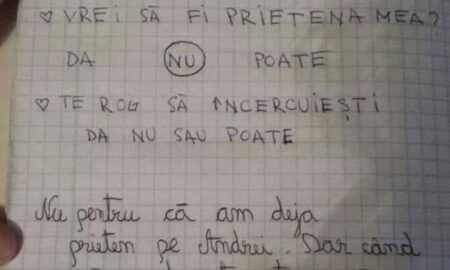 ♡ VREI SĂ FI PRIETENA MEA?
DA NU POATE
♡ TE ROG SĂ ÎNCERCUIEȘTI
DA NU SAU POATE
Nu pentru că am deja
prieten pe Andrei. Dar când